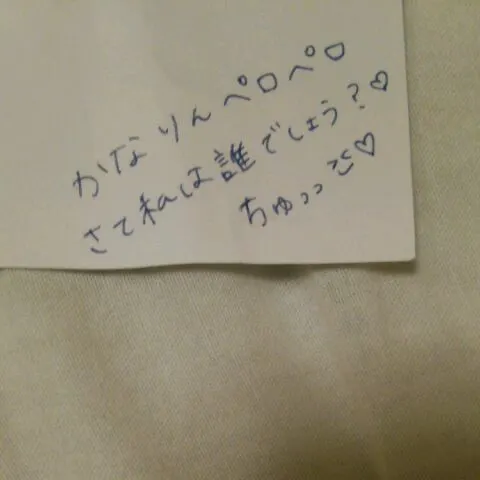 かなりんペロペロ
さて私は誰でしょう?♡
ちゅっっ♡